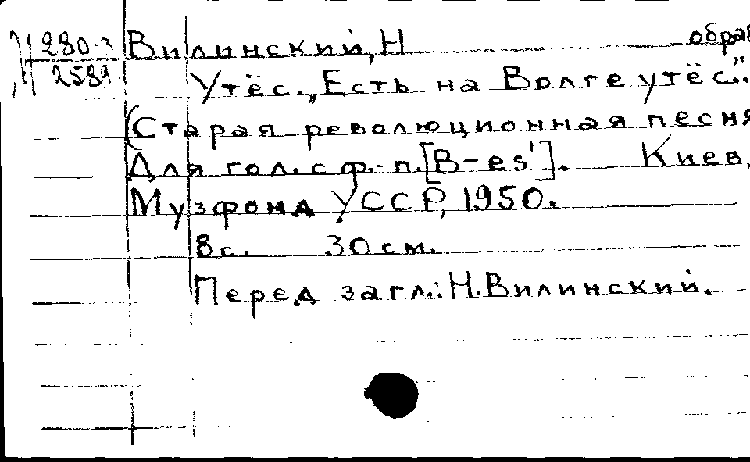 Вилинский, Н обра
280-3
2589
Утёс. „Есть на Волге утёс".
(Старая революционная песня
Для гол. с ф.-п. [B-es']. Киев,
Музфонд УССР, 1950.
8 с. 30 см.
Перед загл.: Н. Вилинский.